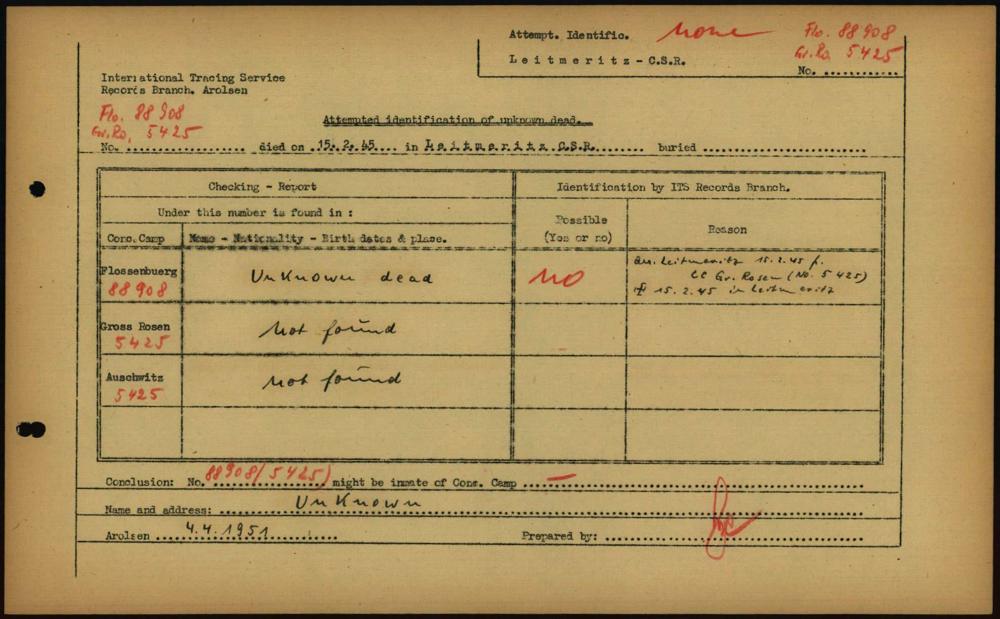 Attempt. Identific. none
Flo. 88 908
Gr.Ro. 5425
Leitmeritz - C.S.R.
No. ............
International Tracing Service
Records Branch. Arolsen
Flo. 88 908
Gr.Ro. 5425
Attempted identification of unknown dead.
No. .................. died on .15.2.45.... in Leitmeritz C.S.R........ buried .........................
Checking - Report
Identification by ITS Records Branch.
Under this number is found in :
Possible
(Yes or no)
Reason
Conc. Camp
Name - Nationality - Birth dates & place.
Flossenbuerg
88908
Unknown dead
NO
Leitmeritz 15.2.45 f.
CC Gr. Rosen (No. 5425)
15.2.45 in Leitmeritz
Gross Rosen
5425
not found
Auschwitz
5425
not found
Conclusion: No. 88908(5425) might be inmate of Conc. Camp ... — ...
Name and address: Unknown
Arolsen 4.4.1951
Prepared by: ...............